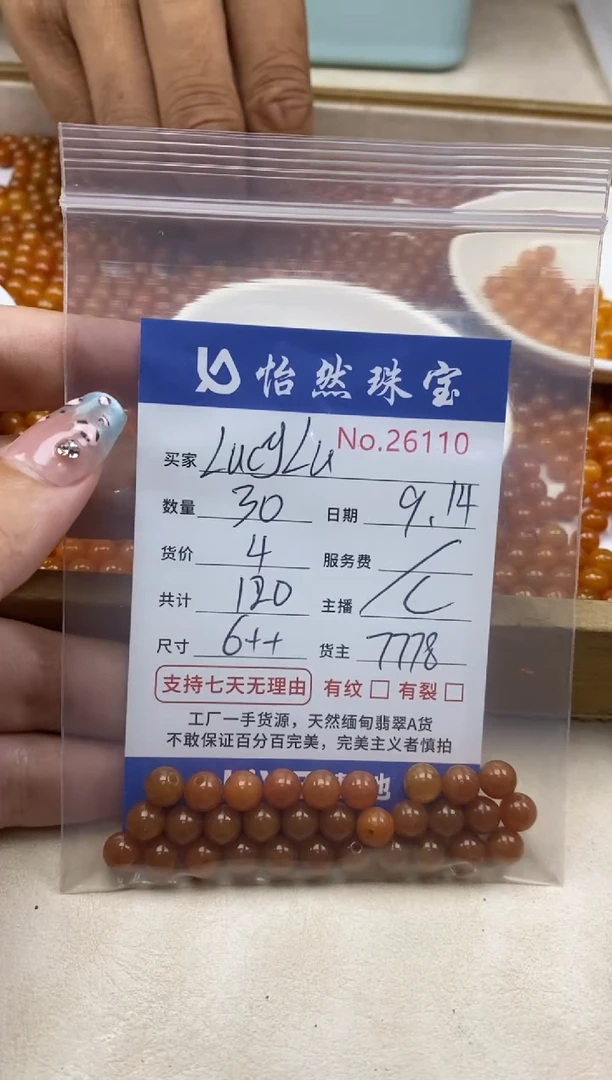 怡然珠宝
No.26110
买家 Lucy Lu
数量 30 日期 9.14
货价 4 服务费 /
共计 120 主播 C
尺寸 6++ 货主 7778
支持七天无理由 有纹 □ 有裂 □
工厂一手货源，天然缅甸翡翠A货
不敢保证百分百完美，完美主义者慎拍